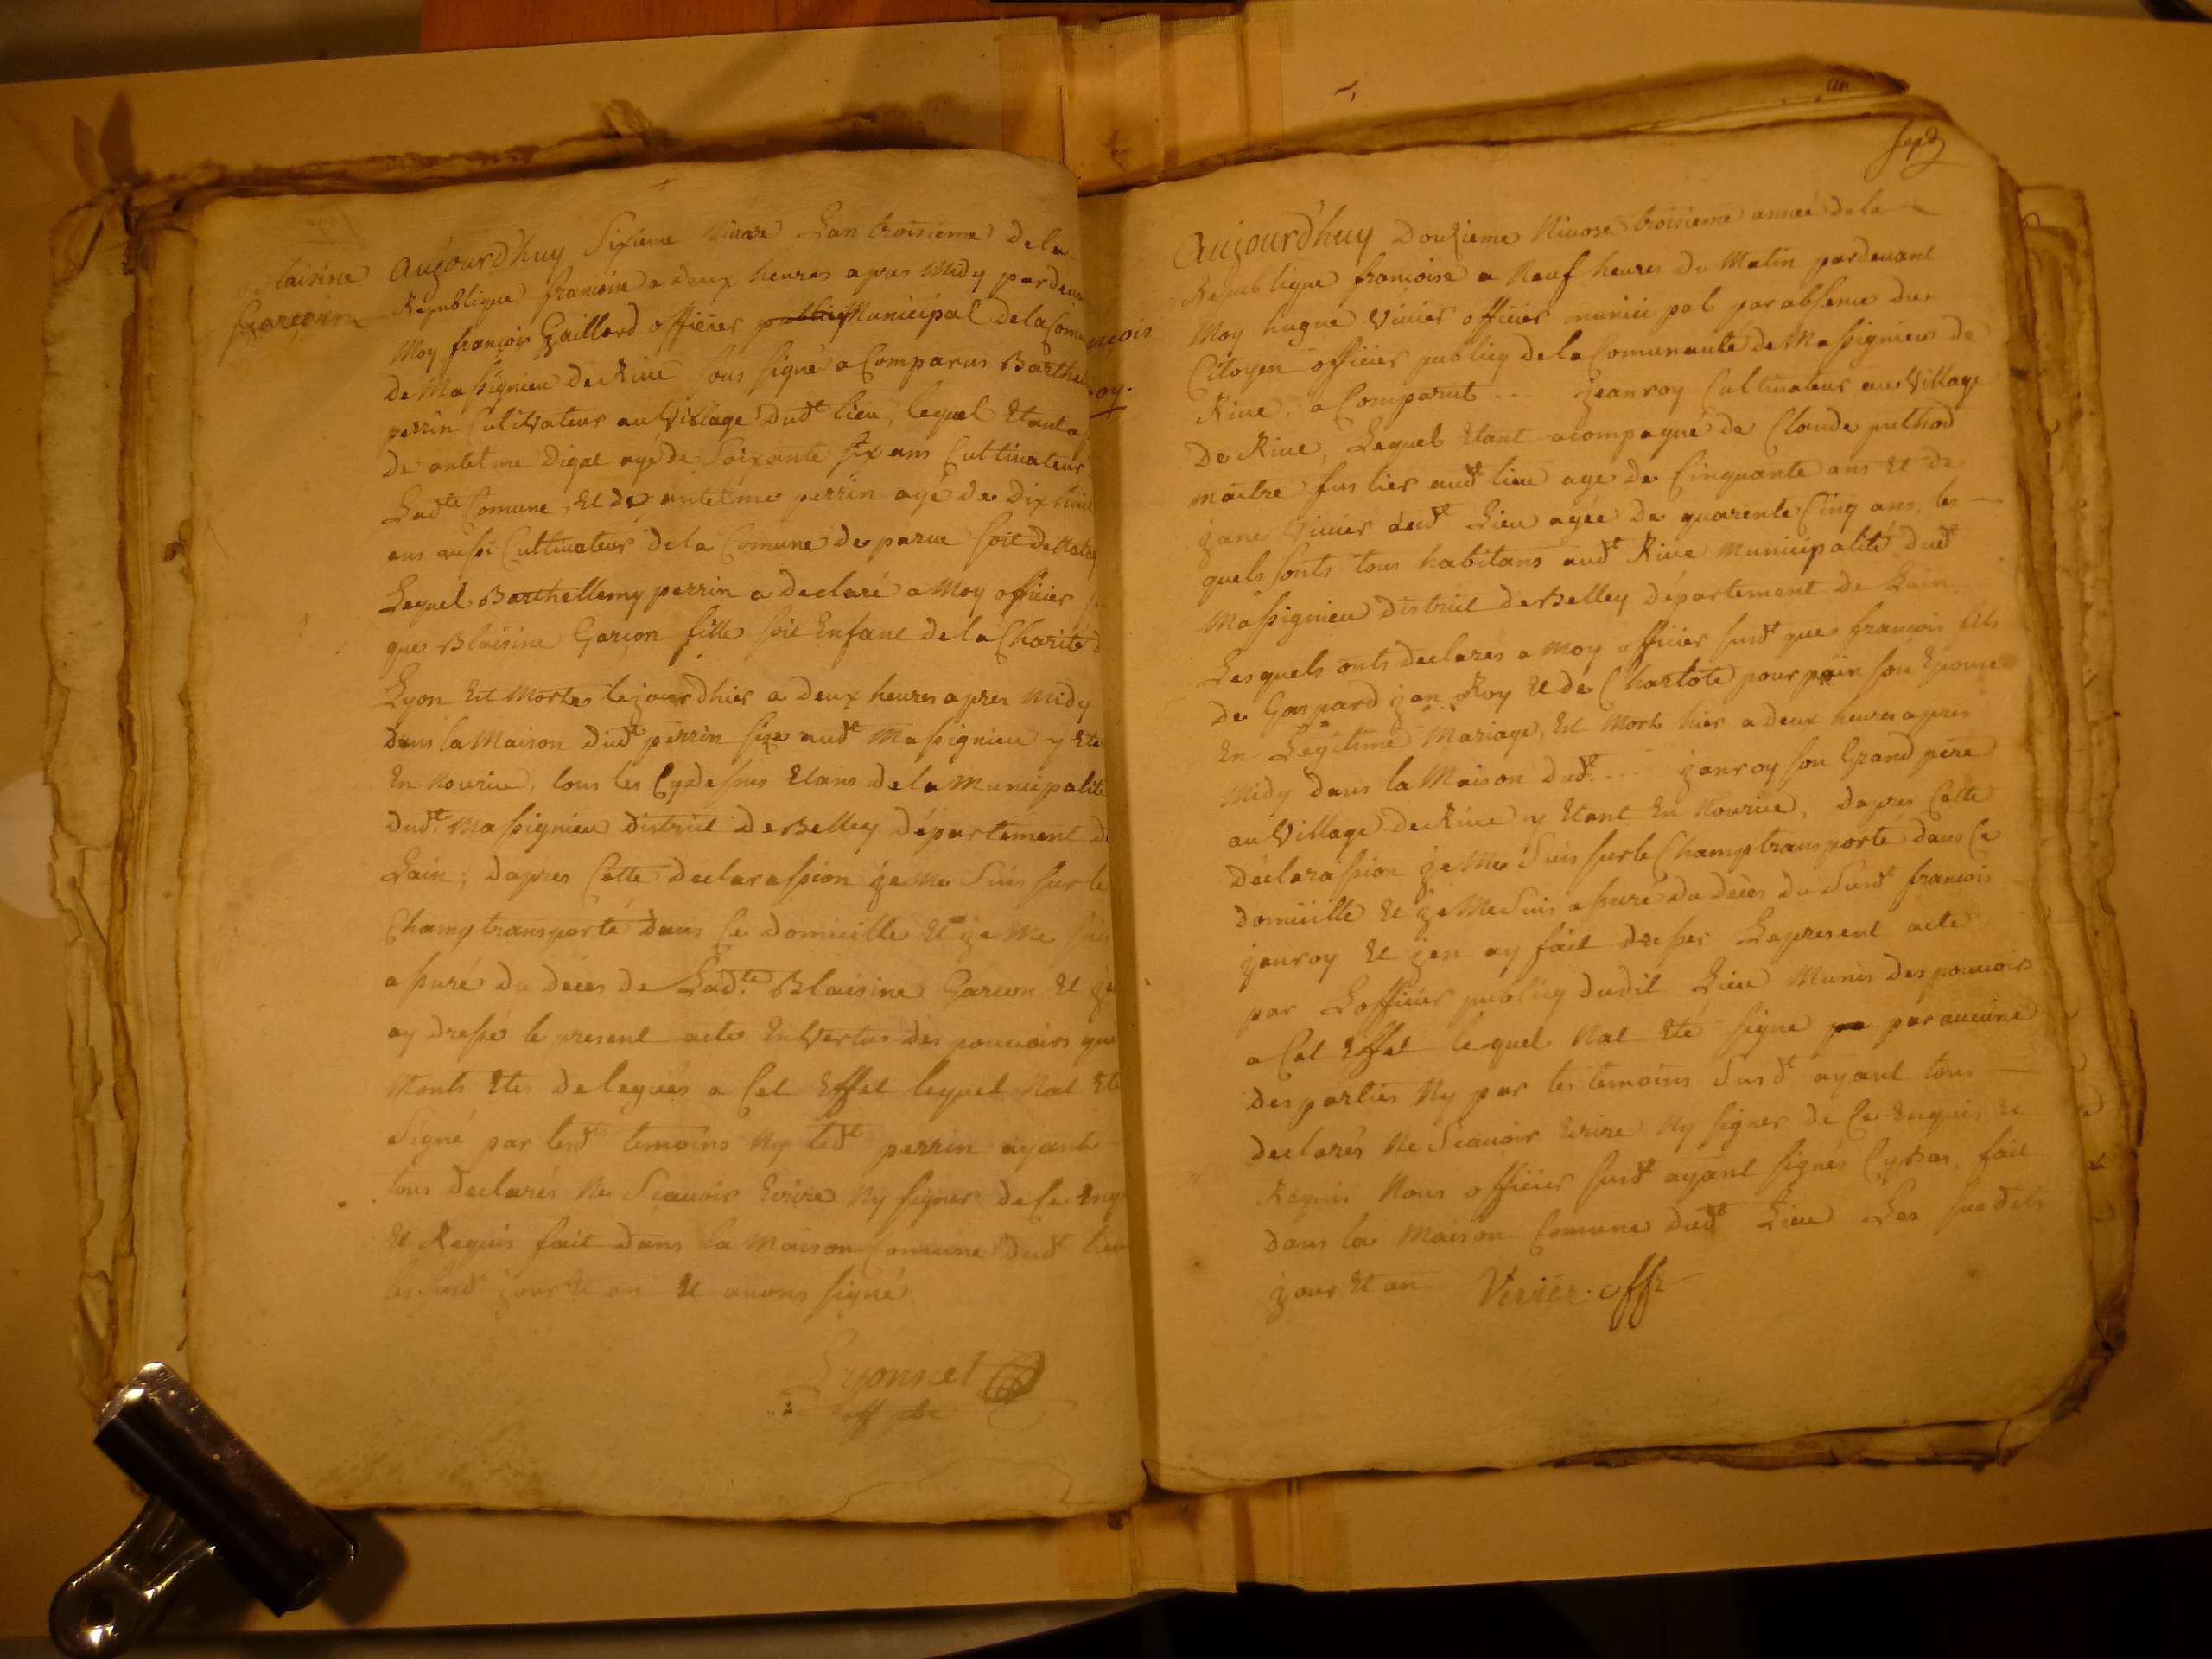 Blaisine
Garçon
Aujourd'huy Sixième Nivose Lan troisieme dela
Republique francoise a deux heures apres Midy pardeva
Moy françois Gaillard officier publicq Municipal dela Comu
de Massignieu de Rive sous signé a Comparus Barthel
perrin Cultivateur au Village dudt lieu, lequel Etant a
de antelme Digat agé de Soixante six ans Cultivateur
Ladte Comune, Et de antelme perrin agé de Dix huit
ans aussi Cultivateur dela Comune de parve soit de
Lequel Barthellemy perrin a declaré a Moy officier
que Blaisine Garcon fille soit Enfant dela Charité d
Lyon Est Morte le jourdhier a deux heures apres Midy
dans la Maison dudt perrin size audt Massignieu y Eta
En Nourice, tous les Cydessus Etans dela Municipalité
dudt Massignieu district de Belley département de
Lain; dapres Cette declarassion je Me Suis sur le
Champ transporté dans Ce domicille Et je Me suis
assuré du deces de Ladte Blaisine Garcon Et je
ay dressé le present acte En Vertus des pouvoirs qui
Monts Etes delegués a Cet Effet lequel Nat Ete
Signé par lesdt temoins Ny ledt perrin ayant
tous declarés Ne Scavoir Ecrire Ny signer de Ce Enq
Et Requis fait dans la Maison Comune dudt lieu
les susdt jour Et an Et avons signé
Lyonnet
off pbc
ançois
oy.
sept
Aujourd'huy Douzieme Nivose troisieme anneé dela
Republique francoise a Neuf heures du Matin pardevant
Moy hugue Vivier officier municipal par absence du
Citoyen officier publicq dela Comunauté de Massignieu de
Rive, a Comparut ... jeanroy Cultivateur au Village
De Rive, Lequel Etant acompagné de Claude puthod
maitre fustier audt lieu age de Cinquante ans Et de
jane Vivier dudt Lieu agée de quarente Cinq ans. les
quels sonts tous habitans audt Rive Municipalité dudt
Massignieu District de Belley département de Lain
Lesquels onts declarés a Moy officier susdt que francois fils
de Gaspard jan Roy Et de Charlote pourpoin son Epouse
En Legitime Mariage, Est Mort hier a deux heures apres
Midy dans la Maison dudt ... janroy son Grand père
au Village de Rive y Etant En Nourice, dapres Cette
déclarassion je Me Suis sur le Champ transporté dans Ce
domicille Et je Me Suis assuré du deces du Susdt francois
janroy Et jen ay fait dresser Lepresent acte
par Lofficier publicq dudit Lieu Munis des pouvoirs
a Cet Effet lequel Nat Eté signe pa par aucune
des parties Ny par les temoins Susdt ayant tous
declarés Ne Scavoir Ecrire Ny signer de Ce Enquis Et
Requis Nous officier susdt ayant signés Cy Bas, fait
dans la Maison Comune dudt Lieu Les susdits
jour Et an Vivier. offr